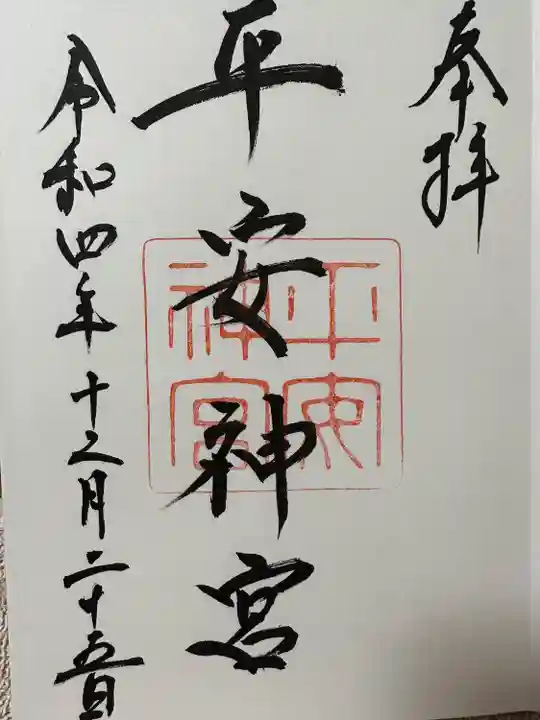 奉拝
平安神宮
平安神宮
令和四年十二月二十五日